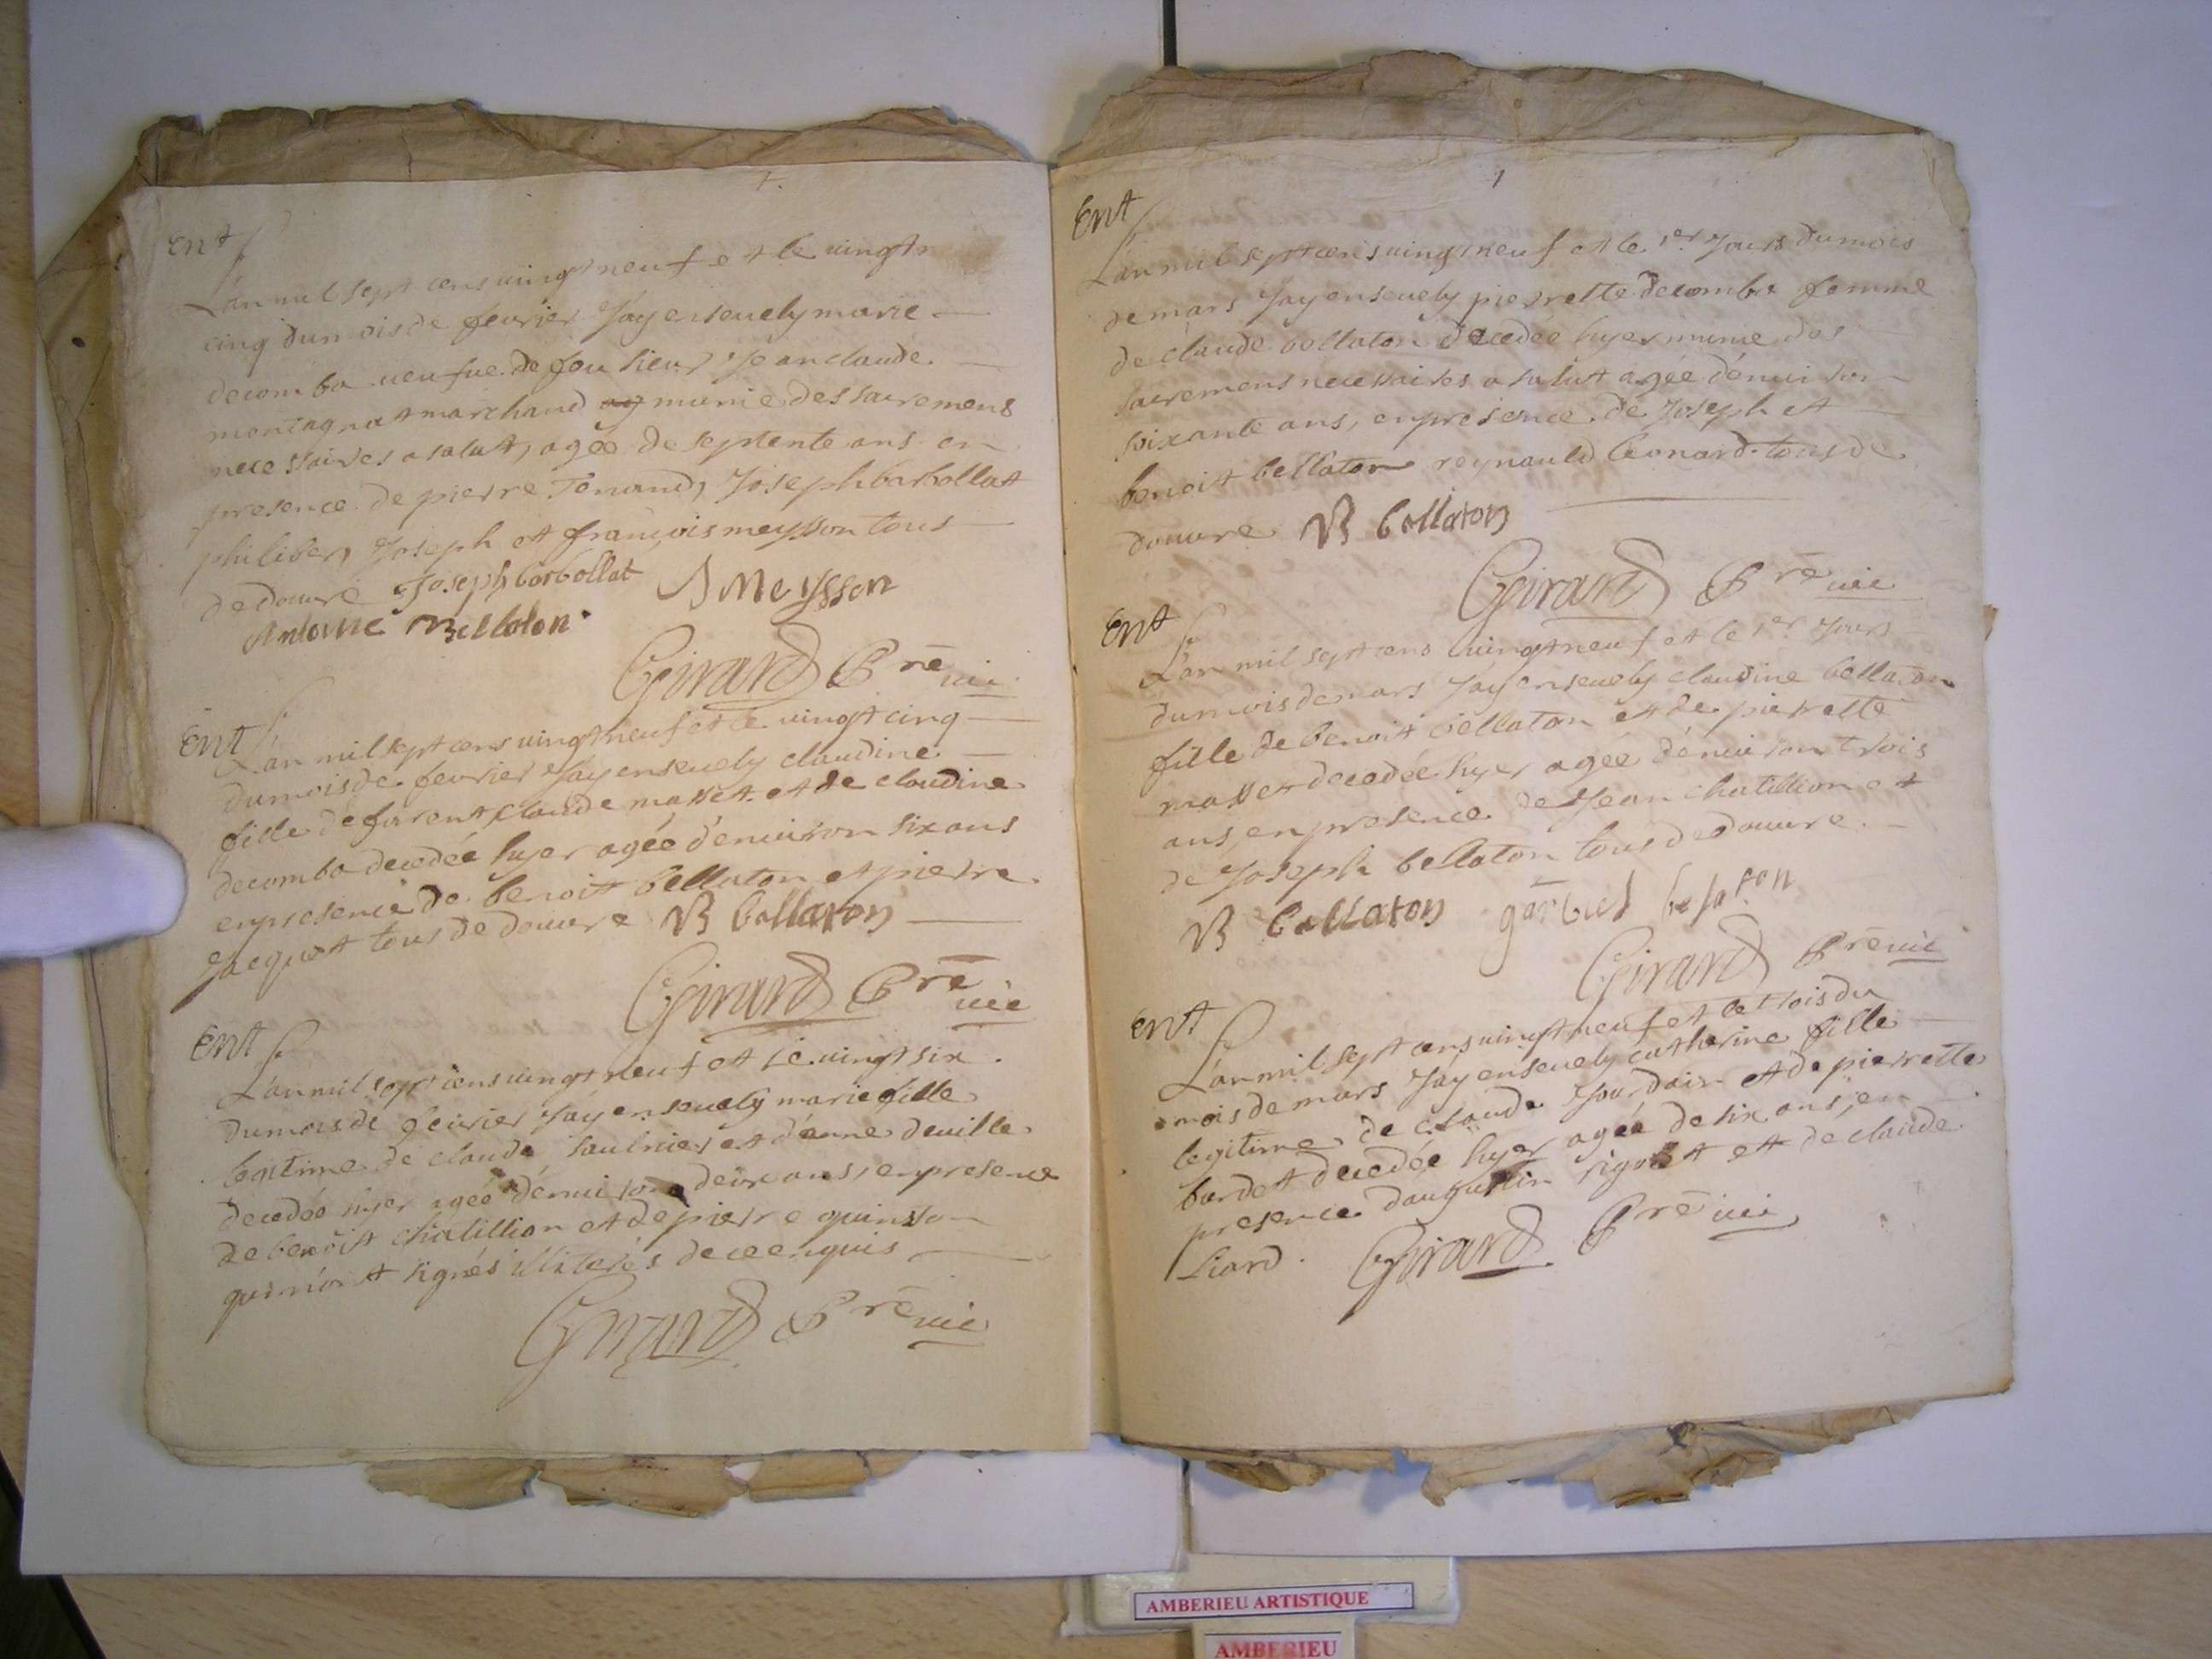 Ent
L'an mil sept cens vingt neuf et le vingt
cinq du mois de fevrier J'ay ensevely marie
decomba veufue de feu sieur Jean claude
montagnat marchand munie des sacremens
necessaires a salut, agée de septente ans en
presence de pierre Tenand, Joseph barbollat
philibert, Joseph et francois meysson tous
de douvre Joseph barbollat J Meysson
Antoine Bellaton
Girard Pre vic
Ent
L'an mil sept cens vingt neuf et le vingt cinq
du mois de fevrier J'ay ensevely claudine
fille de claude masset et de claudine
decomba decedée hyer agée d'environ six ans
en presence de benoitt bellaton et pierre
Jacquet tous de douvre B bellaton
Girard Pre vic
Ent
L'an mil sept cens vingt neuf et le vingt six
du mois de fevrier J'ay ensevely marie fille
legitime de claude saulnier et d'anne deville
decedée hyer agée d'environ deux ans, en presence
de benoit chatillion et de pierre quinson
qui n'ont signés illiterés de ce enquis
Girard Pre vic
1
Ent
L'an mil sept cens vingt neuf et le 1er Jour du mois
de mars J'ay ensevely pierrette decomba femme
de claude bellaton decedée hyer munie des
sacremens necessaires a salut agée d'environ
soixante ans, en presence de Joseph et
benoit bellaton reynauld Leonard tous de
douvre B bellaton
Girard Pre vic
Ent
L'an mil sept cens vingt neuf et le 1er Jour
du mois de mars J'ay ensevely claudine bellaton
fille de benoit bellaton et de pierrette
masset decedée hyer agée d'environ trois
ans, en presence de Jean chatillion et
de Joseph bellaton tous de douvre
B bellaton
Girard Pre vic
Ent
L'an mil sept cens vingt neuf et le trois du
mois de mars J'ay ensevely catherine fille
legitime de claude Jourdain et de pierrette
bardet decedée hyer agée de six ans, en
presence d'augustin rigollet et de claude
Liard. Girard Pre vic
AMBERIEU ARTISTIQUE
AMBERIEU